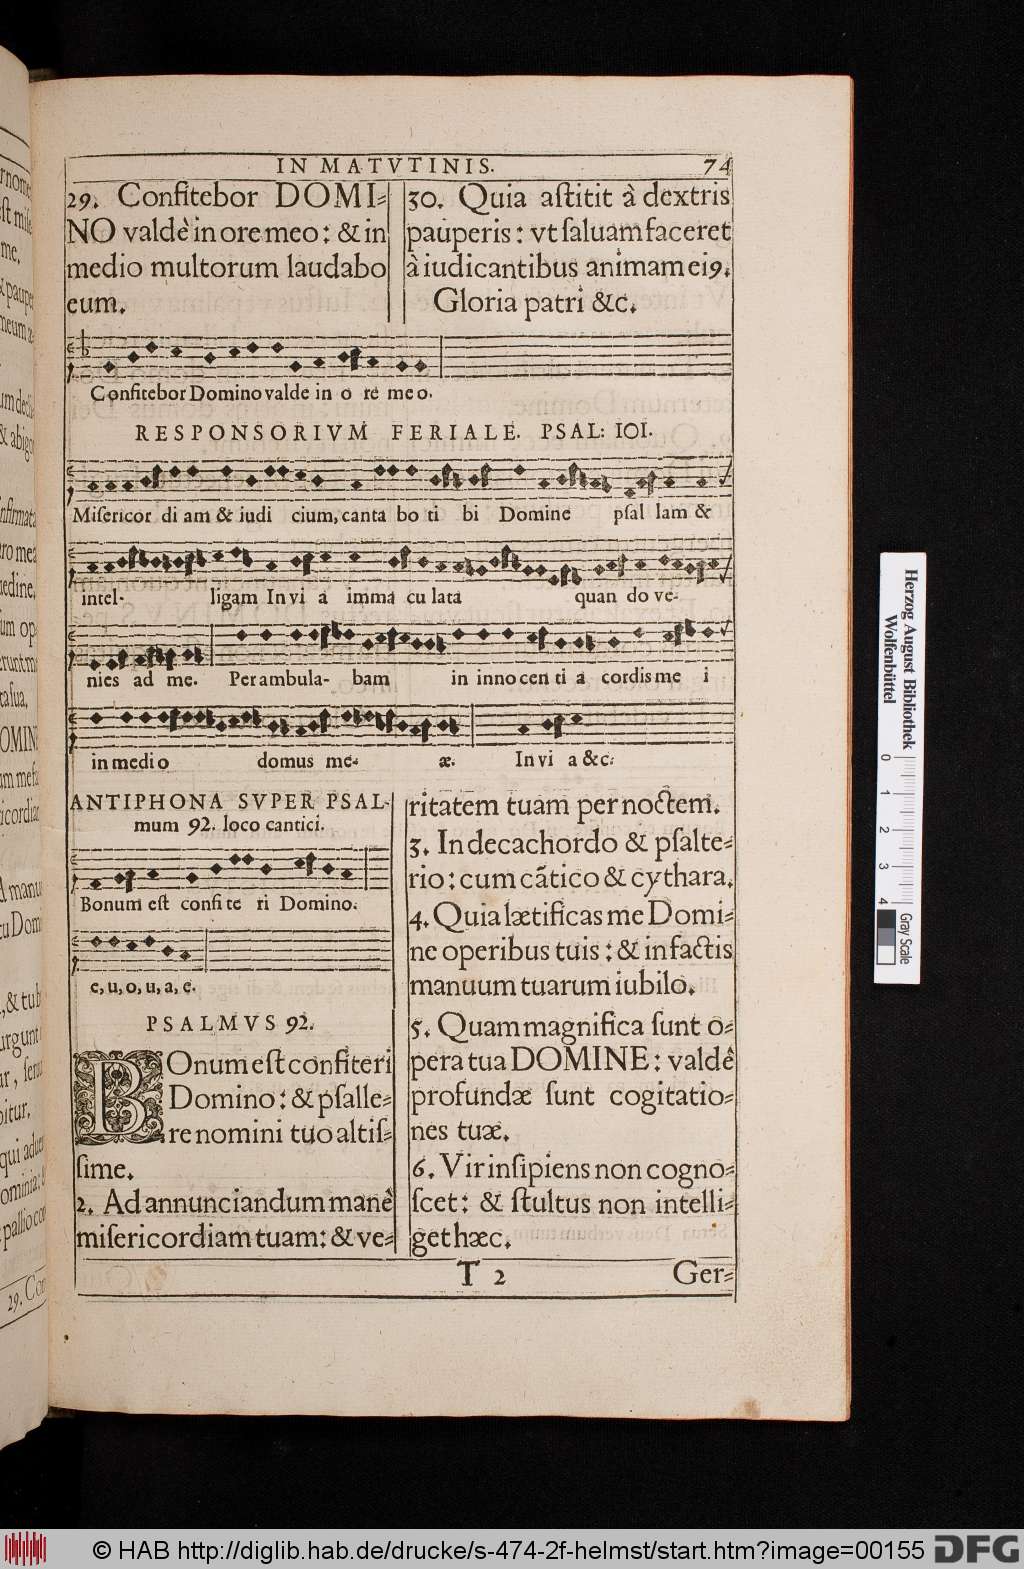 IN MATVTINIS. 74
29. Confitebor DOMI=
NO valdè in ore meo: & in
medio multorum laudabo
eum.
30. Quia aſtitit à dextris
pauperis: vt ſaluam faceret
à iudicantibus animam ei9.
Gloria patri &c.
Confitebor Domino valde in o re me o.
RESPONSORIVM FERIALE. PSAL: 101.
Miſericor di am & iudi cium, canta bo ti bi Domine pſal lam &
intel- ligam In vi a imma cu lata quan do ve-
nies ad me. Per ambula- bam in inno cen ti a cordis me i
in medi o domus me- æ. In vi a &c:
ANTIPHONA SVPER PSAL-
mum 92. loco cantici.
Bonum eſt confi te ri Domino.
e, u, o, u, a, e.
PSALMVS 92.
BOnum eſt confiteri
Domino: & pſalle=
re nomini tuo altiſ=
ſime.
2. Ad annunciandum manè
miſericordiam tuam: & ve=
ritatem tuam per noctem.
3. In decachordo & pſalte=
rio: cum cãtico & cythara.
4. Quia lætificas me Domi=
ne operibus tuis: & in factis
manuum tuarum iubilo.
5. Quam magnifica ſunt o=
pera tua DOMINE: valdè
profundæ ſunt cogitatio=
nes tuæ.
6. Vir inſipiens non cogno=
ſcet: & ſtultus non intelli=
get hæc.
T 2 Ger=
Herzog August Bibliothek
Wolfenbüttel
0 1 2 3 4
Gray Scale
© HAB http://diglib.hab.de/drucke/s-474-2f-helmst/start.htm?image=00155
DFG